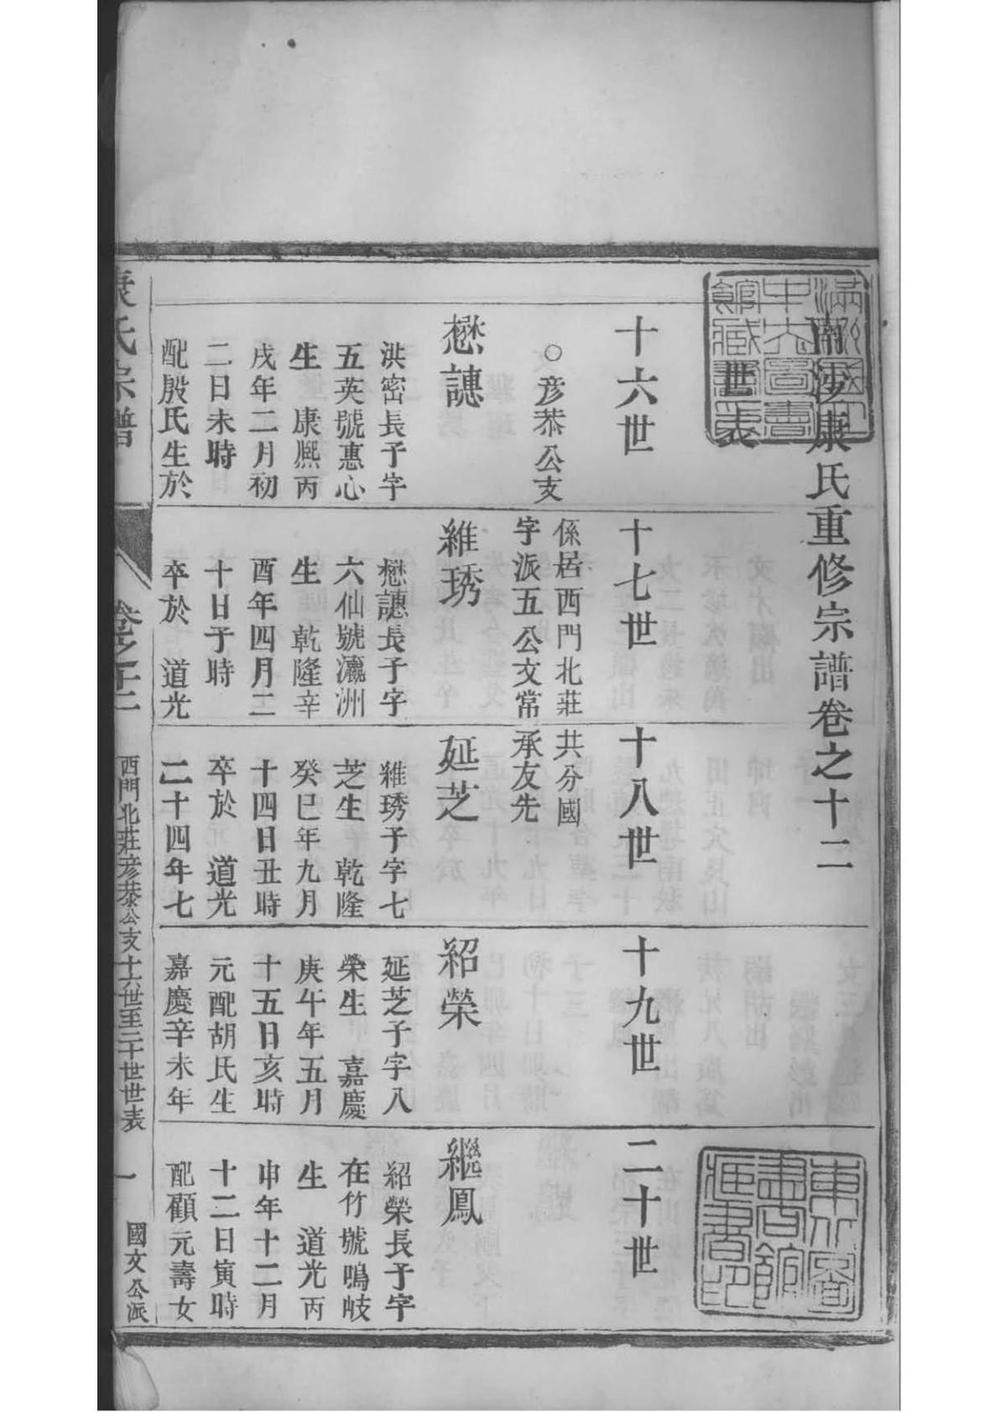 南沙康氏重修宗譜卷之十二
世表
十六世
○彥恭公支
懋譓
洪密長子字
五英號惠心
生 康熙丙
戌年二月初
二日未時
配殷氏生於
十七世
係居西門北莊
字派五公文常
維琇
懋譓長子字
六仙號瀛洲
生 乾隆辛
酉年四月二
十日子時
卒於 道光
十八世
共分國
承友先
延芝
維琇子字七
芝生 乾隆
癸巳年九月
十四日丑時
卒於 道光
二十四年七
十九世
紹榮
延芝子字八
榮生 嘉慶
庚午年五月
十五日亥時
元配胡氏生
嘉慶辛未年
二十世
繼鳳
紹榮長子字
在竹號鳴岐
生 道光丙
申年十二月
十二日寅時
配顧元壽女
康氏宗譜
卷之十二
西門北莊彥恭公支十六世至二十世世表
一
國文公派